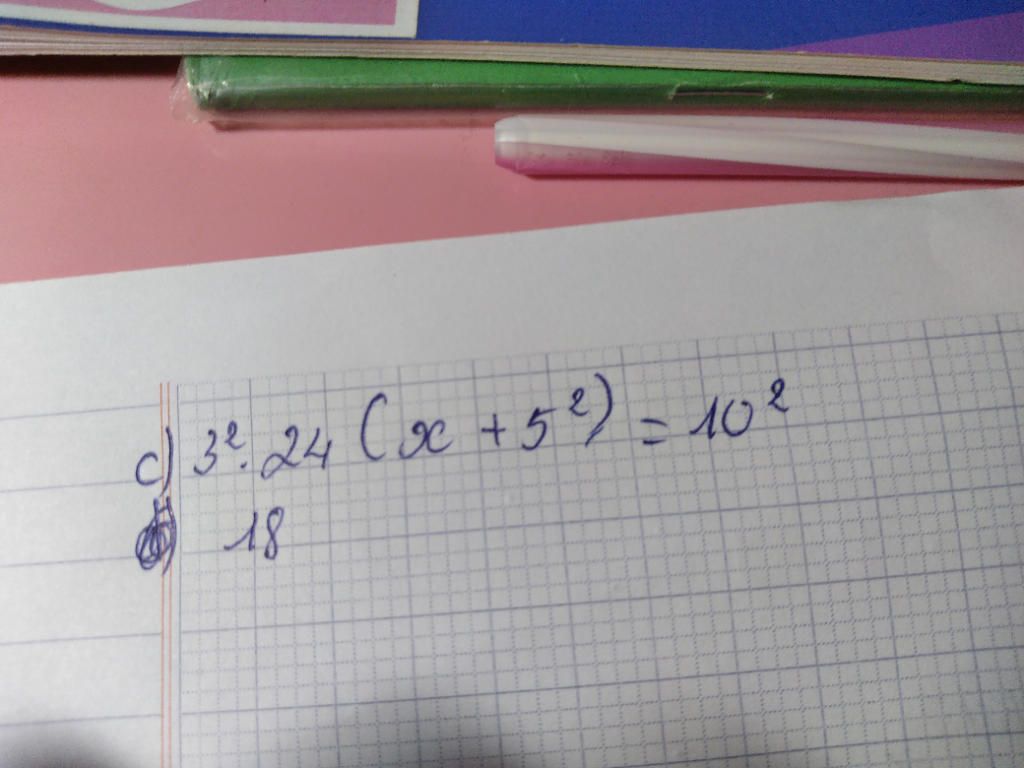 c) 3². 24 (x + 5²) = 10²
18